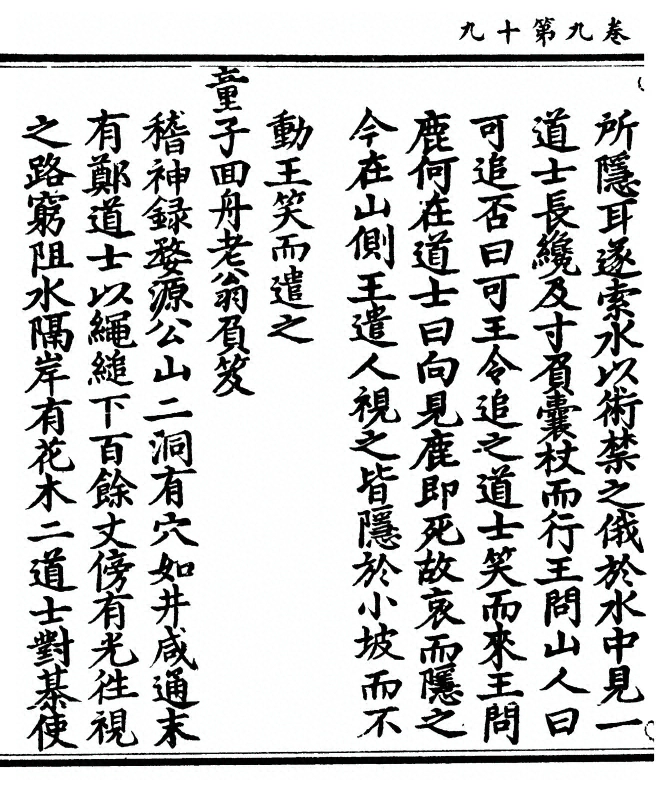 卷九第十九
所隱耳遂索水以術禁之俄於水中見一
道士長纔及寸負囊杖而行王問山人曰
可追否曰可王令追之道士笑而來王問
鹿何在道士曰向見鹿即死故哀而隱之
今在山側王遣人視之皆隱於小坡而不
動王笑而遣之
童子回舟老翁負笈
稽神録婺源公山二洞有穴如井咸通末
有鄭道士以繩縋下百餘丈傍有光往視
之路窮阻水隔岸有花木二道士對棊使